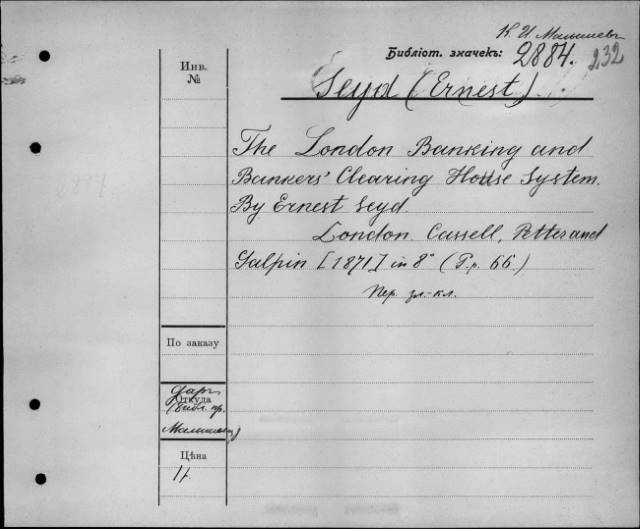 К. И. Малышевъ
Библіот. значекъ: 2884. 232
Инв.
№
Seyd (Ernest).
The London Banking and
Bankers' Clearing House System.
By Ernest Seyd.
London. Cassell, Petter and
Galpin [1871] in 8° (P.p. 66.)
Пер. зл.-кл.
По заказу
Откуда
даръ
(библ. пр.
Малышева)
Цѣна
2884